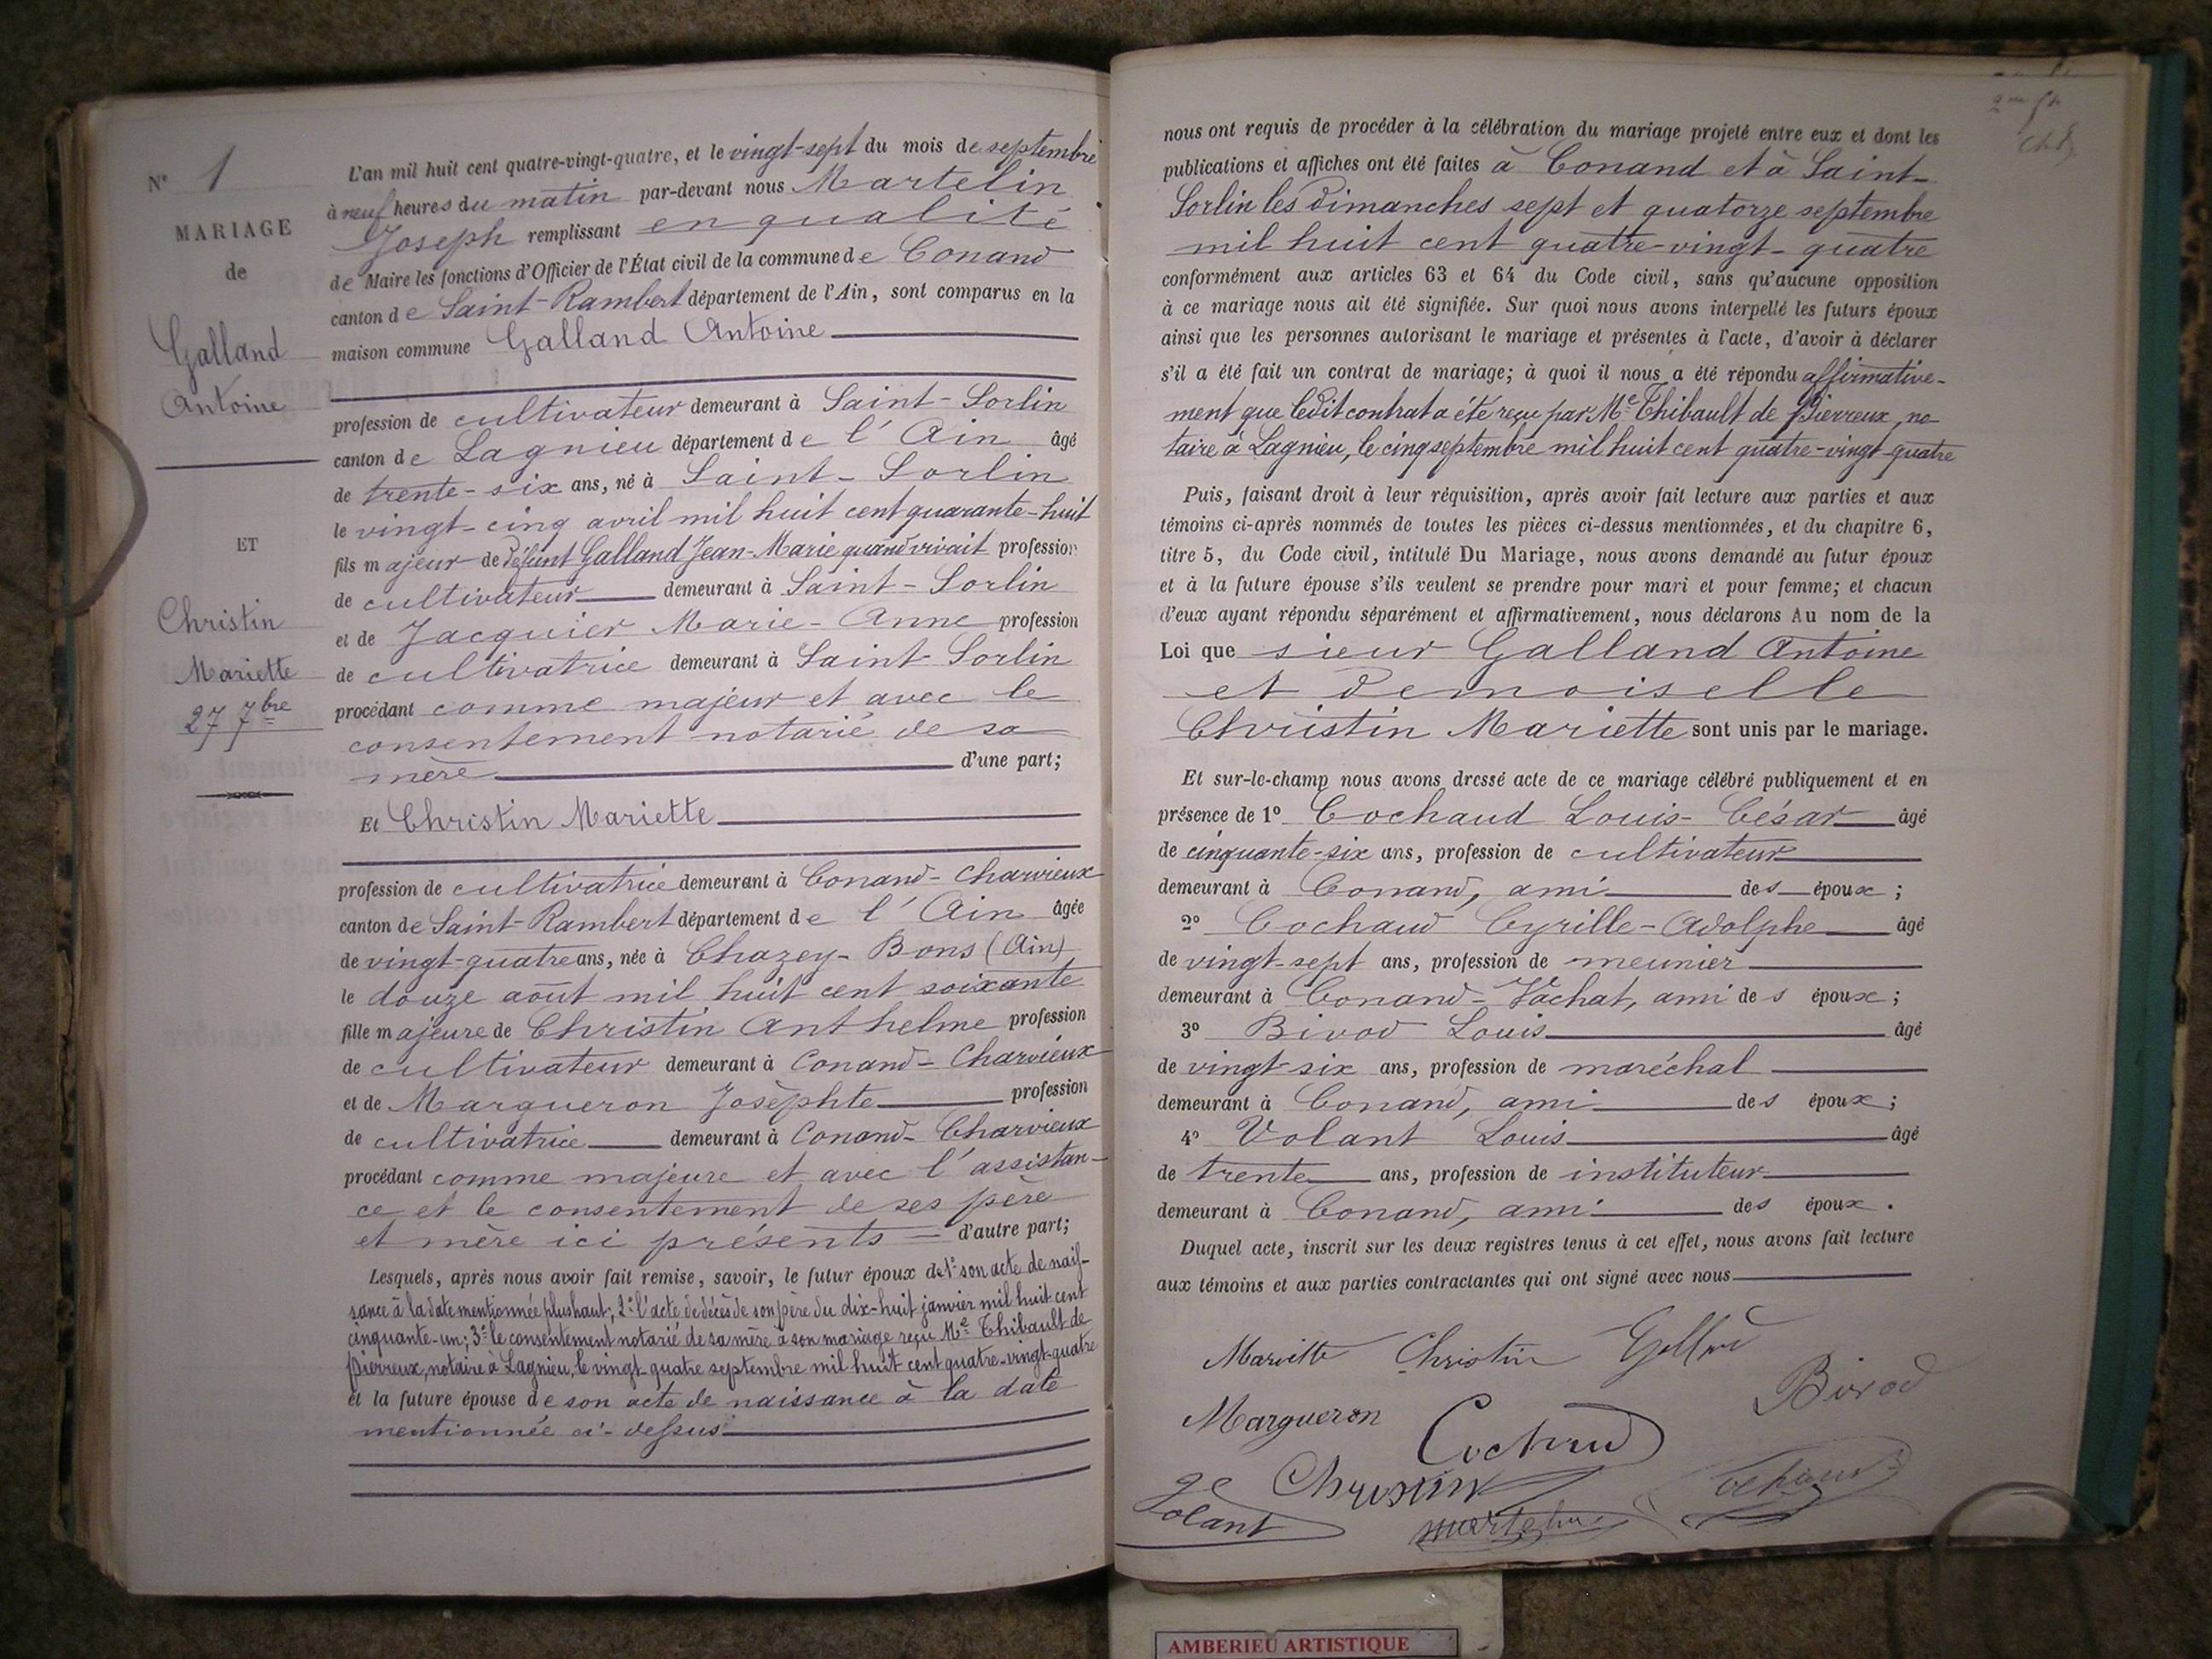 N° 1
MARIAGE
de
Galland
Antoine
ET
Christin
Mariette
27 7bre
L'an mil huit cent quatre-vingt-quatre, et le vingt-sept du mois de septembre
à neuf heures du matin par-devant nous Martelin
Joseph remplissant en qualité
de Maire les fonctions d'Officier de l'État civil de la commune de Conand
canton de Saint-Rambert département de l'Ain, sont comparus en la
maison commune Galland Antoine
profession de cultivateur demeurant à Saint-Sorlin
canton de Lagnieu département de l'Ain âgé
de trente-six ans, né à Saint-Sorlin
le vingt-cinq avril mil huit cent quarante-huit
fils majeur de défunt Galland Jean-Marie quand vivait profession
de cultivateur demeurant à Saint-Sorlin
et de Jacquier Marie-Anne profession
de cultivatrice demeurant à Saint-Sorlin
procédant comme majeur et avec le
consentement notarié de sa
mère d'une part;
Et Christin Mariette
profession de cultivatrice demeurant à Conand-Charvieux
canton de Saint-Rambert département de l'Ain âgée
de vingt-quatre ans, née à Chazey-Bons (Ain)
le douze août mil huit cent soixante
fille majeure de Christin Anthelme profession
de cultivateur demeurant à Conand-Charvieux
et de Margueron Josèphte profession
de cultivatrice demeurant à Conand-Charvieux
procédant comme majeure et avec l'assistan-
ce et le consentement de ses père
et mère ici présents d'autre part;
Lesquels, après nous avoir fait remise, savoir, le futur époux de 1° son acte de nais-
sance à la date mentionnée plus haut; 2° l'acte de décès de son père du dix-huit janvier mil huit cent
cinquante-un; 3° le consentement notarié de sa mère à son mariage reçu Me Thibault de
Pierreux, notaire à Lagnieu, le vingt-quatre septembre mil huit cent quatre-vingt-quatre
et la future épouse de son acte de naissance à la date
mentionnée ci-dessus
nous ont requis de procéder à la célébration du mariage projeté entre eux et dont les
publications et affiches ont été faites à Conand et à Saint-
Sorlin les dimanches sept et quatorze septembre
mil huit cent quatre-vingt-quatre
conformément aux articles 63 et 64 du Code civil, sans qu'aucune opposition
à ce mariage nous ait été signifiée. Sur quoi nous avons interpellé les futurs époux
ainsi que les personnes autorisant le mariage et présentes à l'acte, d'avoir à déclarer
s'il a été fait un contrat de mariage; à quoi il nous a été répondu affirmative-
ment que ledit contrat a été reçu par Me Thibault de Pierreux, no-
taire à Lagnieu, le cinq septembre mil huit cent quatre-vingt-quatre
Puis, faisant droit à leur réquisition, après avoir fait lecture aux parties et aux
témoins ci-après nommés de toutes les pièces ci-dessus mentionnées, et du chapitre 6,
titre 5, du Code civil, intitulé Du Mariage, nous avons demandé au futur époux
et à la future épouse s'ils veulent se prendre pour mari et pour femme; et chacun
d'eux ayant répondu séparément et affirmativement, nous déclarons Au nom de la
Loi que sieur Galland Antoine
et demoiselle
Christin Mariette sont unis par le mariage.
Et sur-le-champ nous avons dressé acte de ce mariage célébré publiquement et en
présence de 1° Cochaud Louis-César âgé
de cinquante-six ans, profession de cultivateur
demeurant à Conand, ami des époux;
2° Cochaud Cyrille-Adolphe âgé
de vingt-sept ans, profession de meunier
demeurant à Conand-Vachat, ami des époux;
3° Bivod Louis âgé
de vingt-six ans, profession de maréchal
demeurant à Conand, ami des époux;
4° Volant Louis âgé
de trente ans, profession de instituteur
demeurant à Conand, ami des époux.
Duquel acte, inscrit sur les deux registres tenus à cet effet, nous avons fait lecture
aux témoins et aux parties contractantes qui ont signé avec nous
Mariette Christin Galland
Bivod
Margueron Cochaud
Christin
Volant
Martelin
AMBERIEU ARTISTIQUE